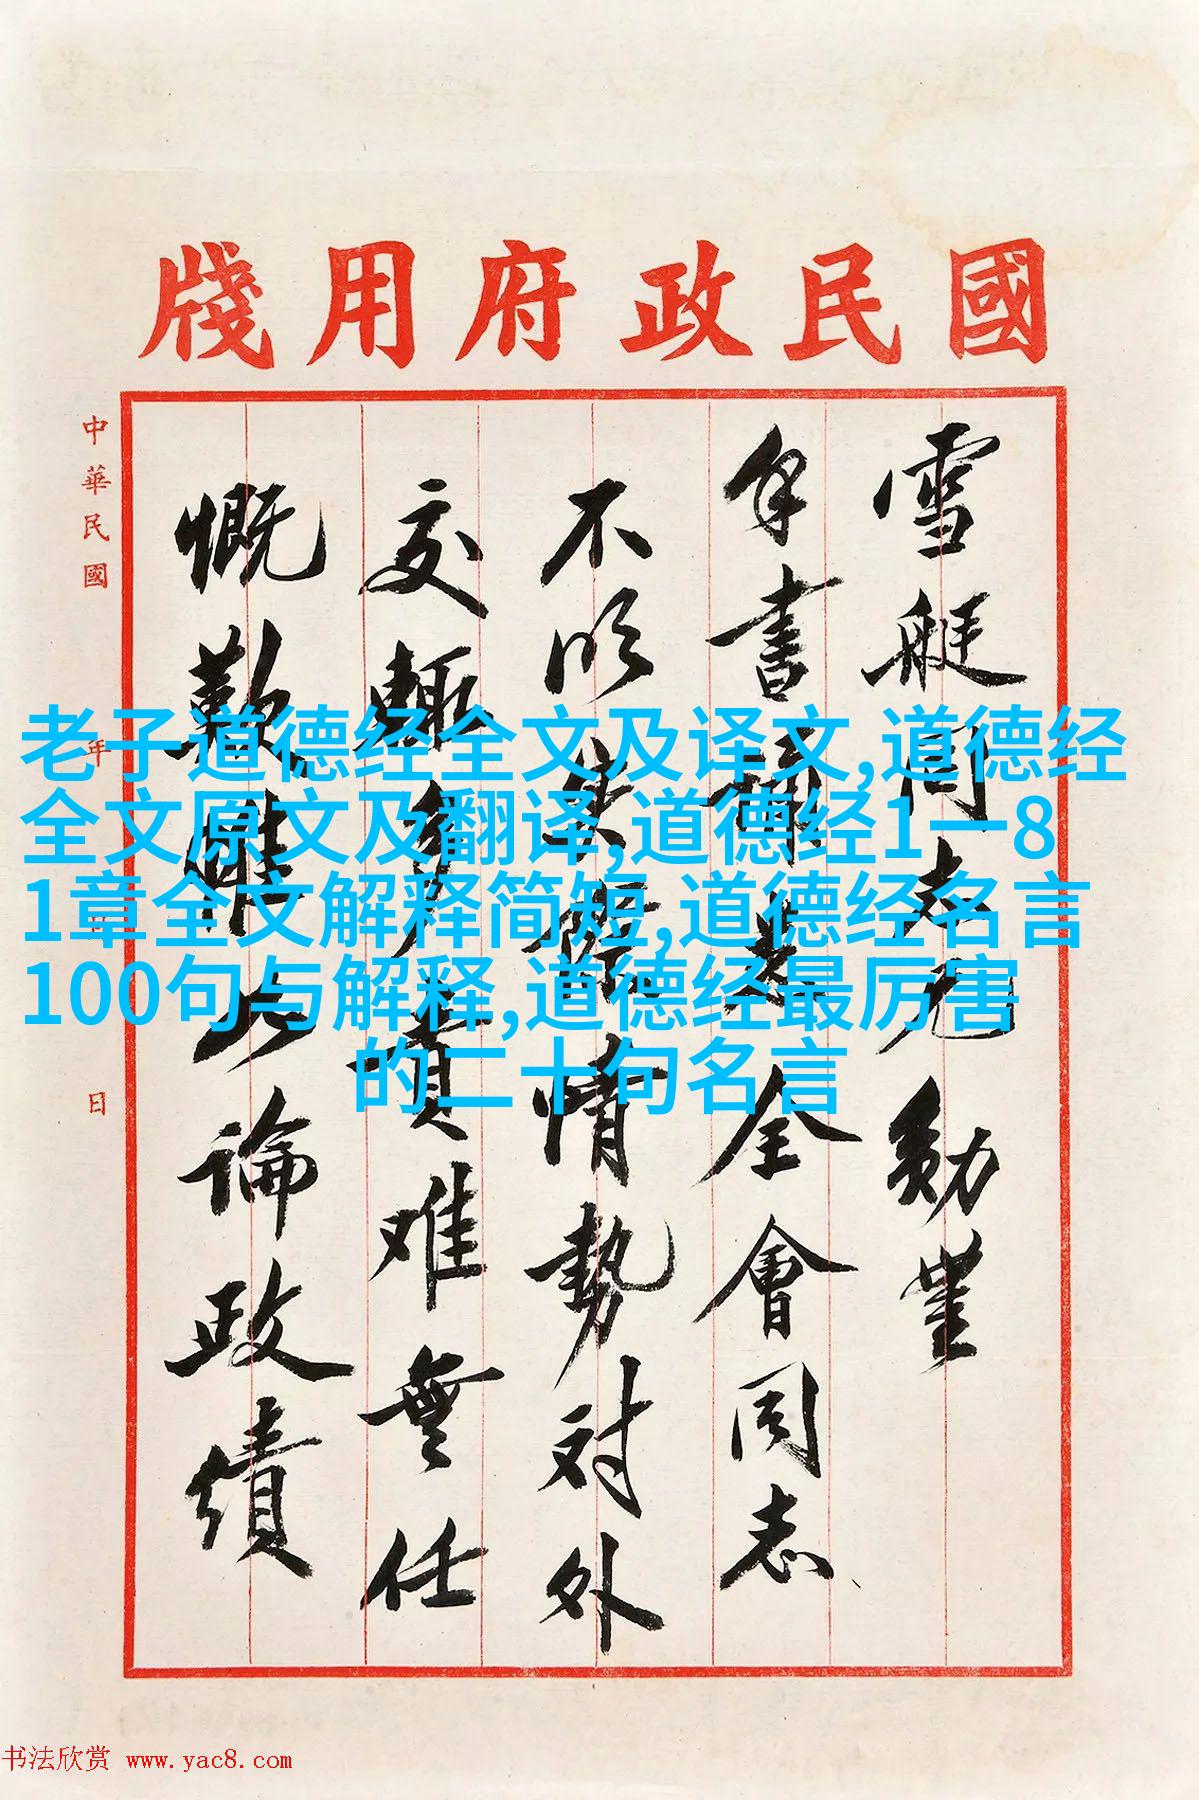 國民政府用牋
雪艇同志兄勛豐
手書誦悉全會同志
不明失態情勢对外
交輒多責难無任
慨歎難以論政績
中華民國 年 月 日
老子道德经全文及译文,道德经
全文原文及翻译,道德经1一8
1章全文解释简短,道德经名言
100句与解释,道德经最厉害
的二十句名言
书法欣赏 www.yac8.com